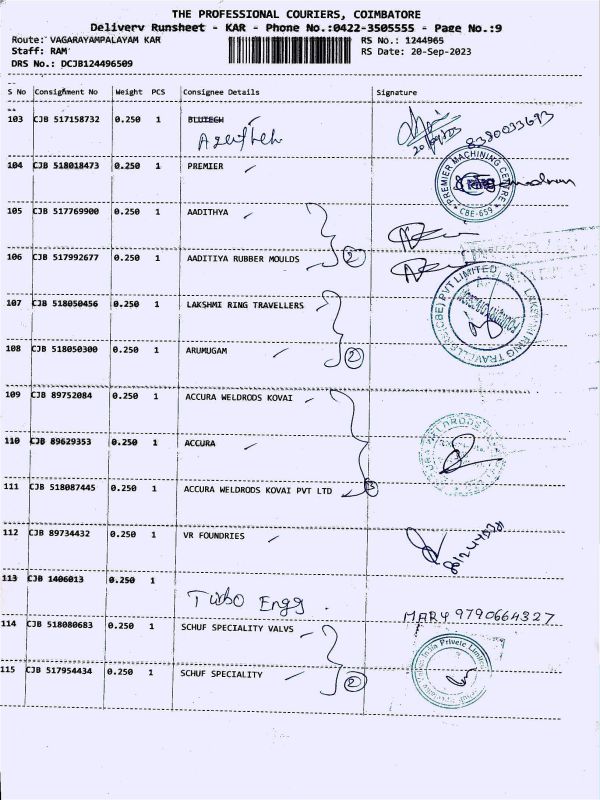 THE PROFESSIONAL COURIERS, COIMBATORE
Delivery Runsheet - KAR - Phone No.:0422-3505555 - Page No.:9
Route: VAGARAYAMPALAYAM KAR RS No.: 1244965
Staff: RAM RS Date: 20-Sep-2023
DRS No.: DCJB124496509
S No Consignment No Weight PCS Consignee Details Signature
103 CJB 517158732 0.250 1 BLUTECH
104 CJB 518018473 0.250 1 PREMIER
PREMIER MACHINING CENTRE
CBE-659
105 CJB 517769900 0.250 1 AADITHYA
106 CJB 517992677 0.250 1 AADITIYA RUBBER MOULDS 2
107 CJB 518050456 0.250 1 LAKSHMI RING TRAVELLERS
LAKSHMI RING TRAVELLERS (CBE) PVT LIMITED
108 CJB 518050300 0.250 1 ARUMUGAM 2
109 CJB 89752084 0.250 1 ACCURA WELDRODS KOVAI
110 CJB 89629353 0.250 1 ACCURA
111 CJB 518087445 0.250 1 ACCURA WELDRODS KOVAI PVT LTD 3
112 CJB 89734432 0.250 1 VR FOUNDRIES
113 CJB 1406013 0.250 1
Turbo Engg. MARY 9790664327
114 CJB 518080683 0.250 1 SCHUF SPECIALITY VALVS
115 CJB 517954434 0.250 1 SCHUF SPECIALITY 2